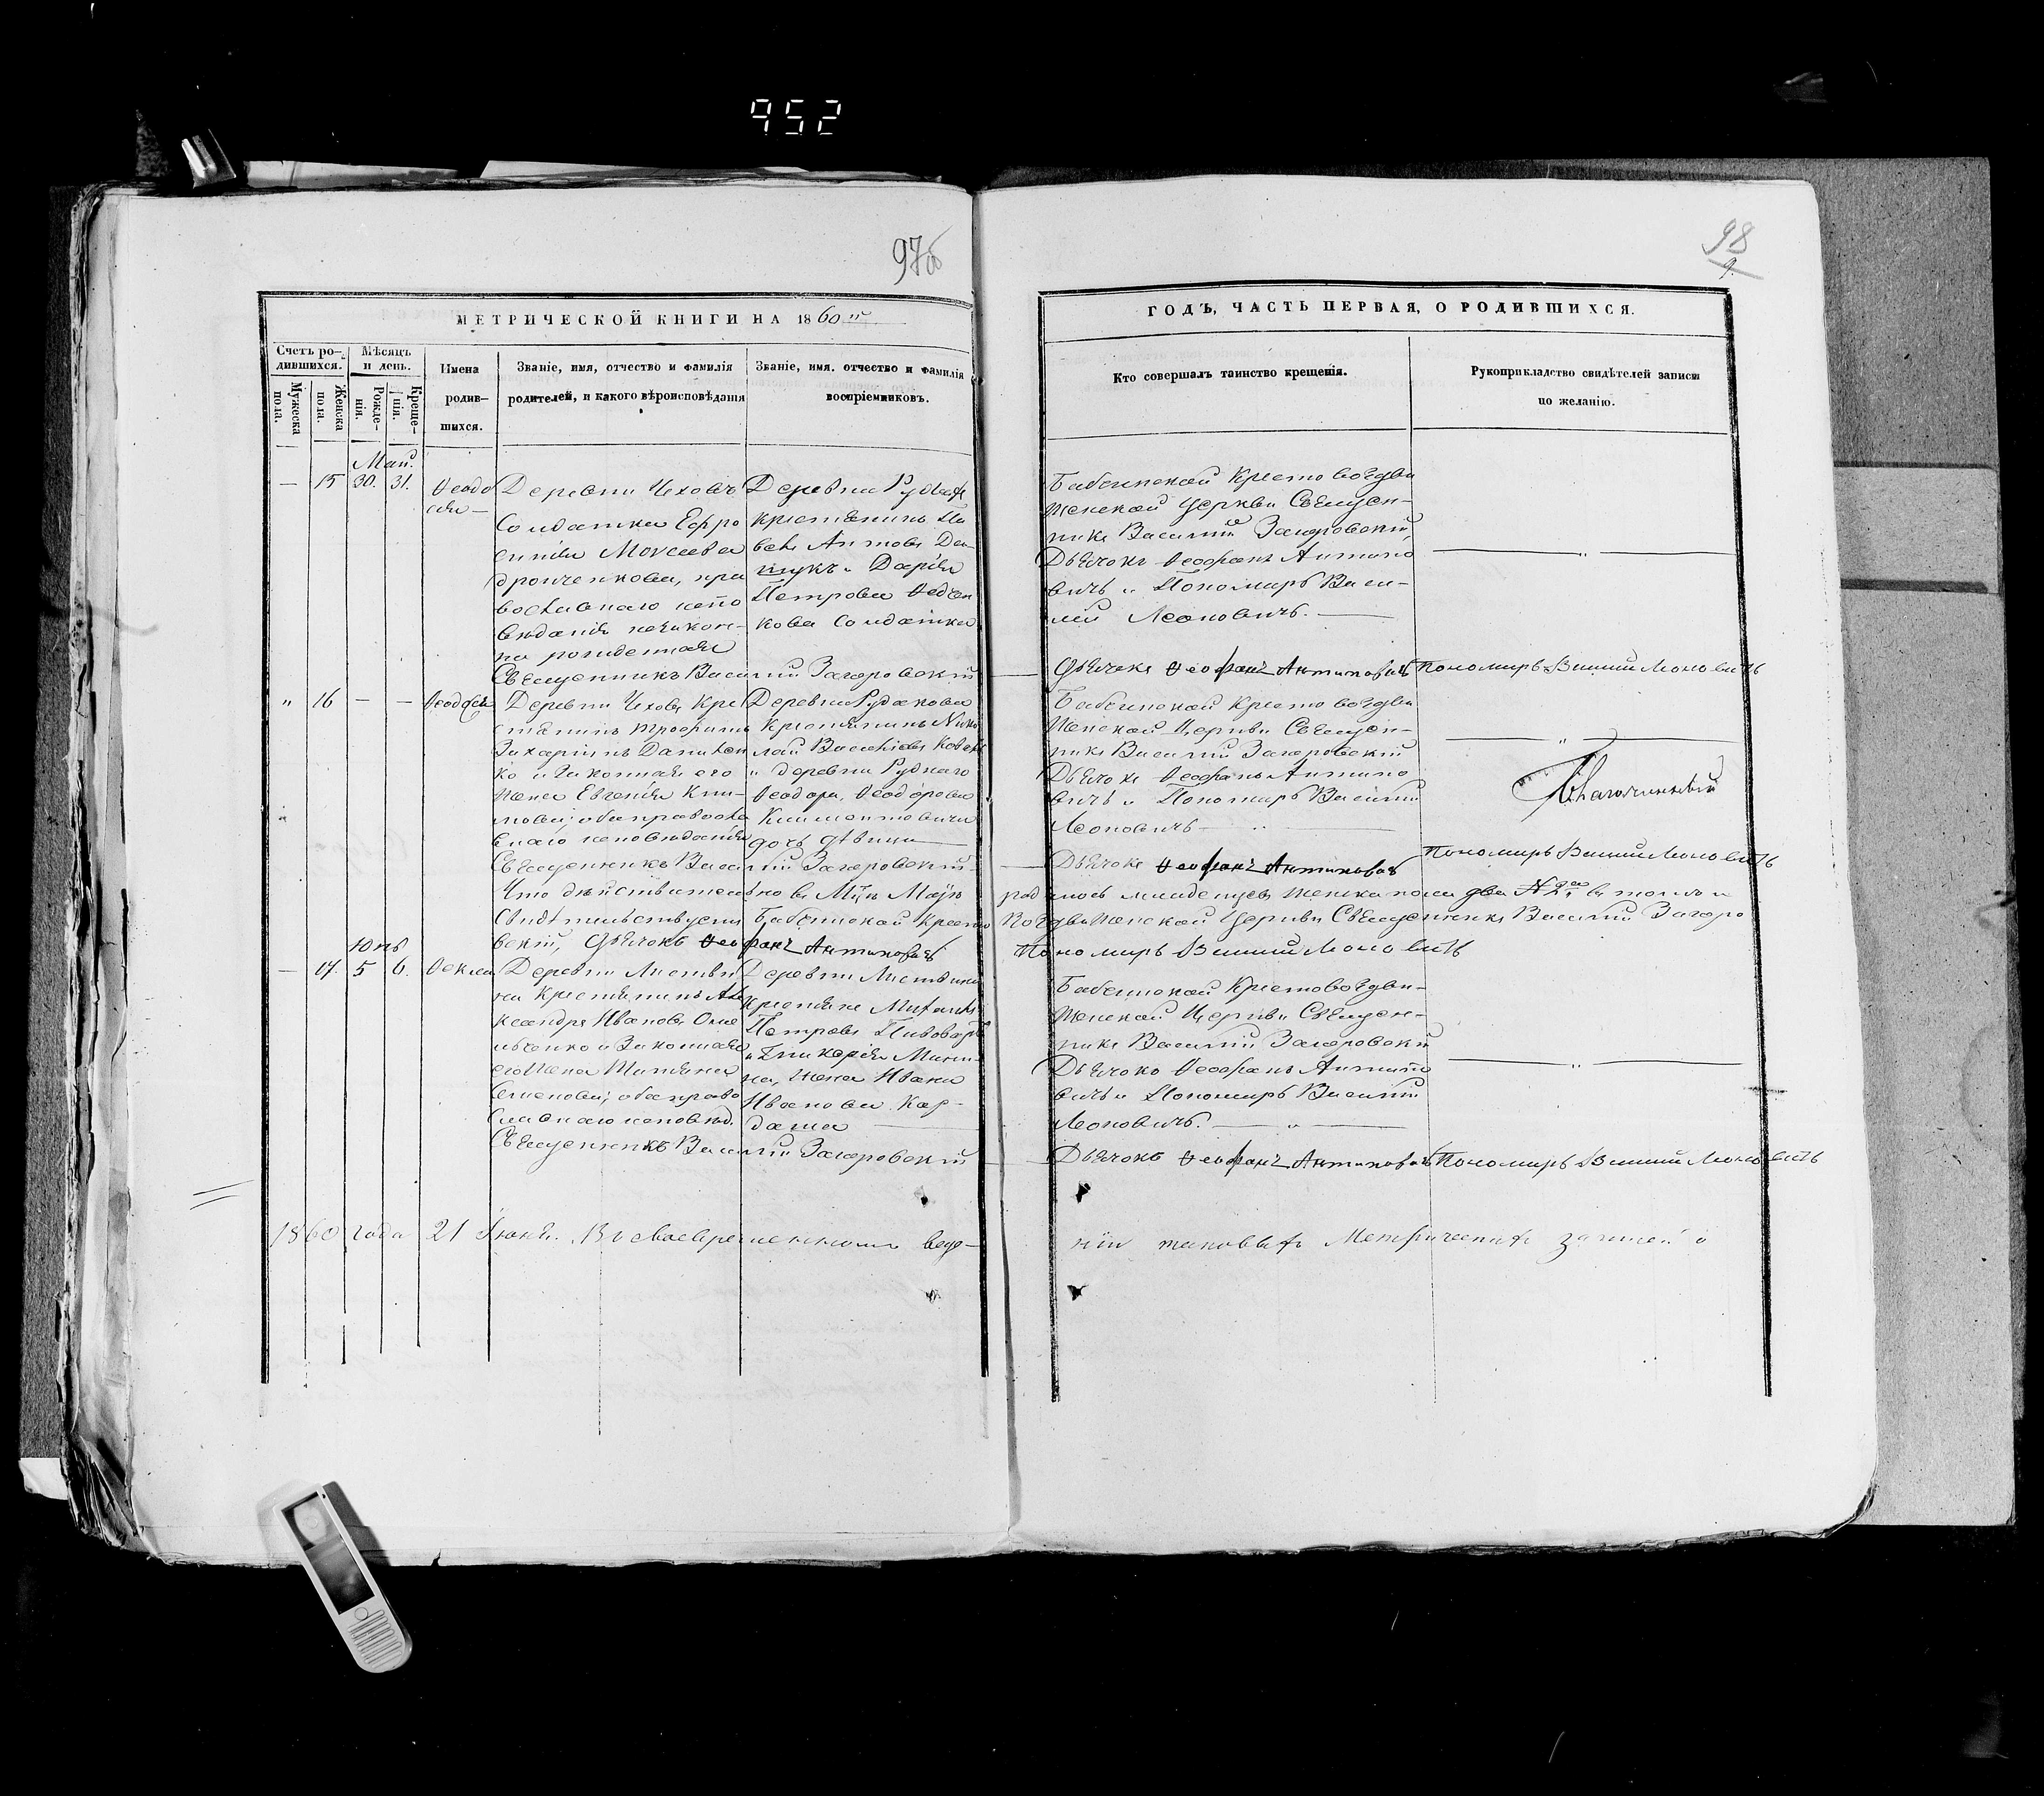 952
97об
98
9.
МЕТРИЧЕСКОЙ КНИГИ НА 1860 й
ГОДЪ, ЧАСТЬ ПЕРВАЯ, О РОДИВШИХСЯ.
Счетъ ро-
дившихся.
Мужеска
пола.
Женска
пола.
Мѣсяцъ
и день.
Рожде-
нія.
Креще-
нія.
Имена
родив-
шихся.
Званіе, имя, отчество и фамилія
родителей, и какого вѣроисповѣданія
Званіе, имя. отчество и фамилія
воспріемниковъ.
Кто совершалъ таинство крещенія.
Рукоприкладство свидѣтелей записи
по желанію.
Май.
— 15 30. 31.
Ѳеодо
сія —
Деревни Чеховъ
Солдатка Ефро
синія Моѵсеева
дронченкова, пра
вославнаго испо
вѣданія незакон-
но рожденная
Деревни
крестьянинъ Па
велъ Антоновъ Дан-
щукъ и Дарія
Петрова Ѳедчен
кова Солдатка
Бабчинской Кресто воздви
женской Церкви Священ-
никъ Василій Загоровскій,
Дьячокъ Ѳеофанъ Антипо
вичъ и Пономарь Васи-
лій Леоновичъ. —
Священникъ Василій Загоровскій
Дьячокъ Ѳеофанъ Антиповичъ Пономарь Василий Леоновичъ
" 16 — —
Ѳеодосія
Деревни Чеховъ Кре
стянинъ Трофимъ
Захаріинъ Данилен
ко и Законная его
жена Евгенія Кли-
мова; оба правосла
внаго исповѣданія
Деревни Рудакова
Крестьянинъ Нико
лай Васильевъ
и деревни Руднаго
Ѳеодора Ѳеодорова
Климонтовича
дочь дѣвица —
Бабчинской Кресто воздви
женской Церкви Священ-
никъ Василій Загоровскій
Дьячокъ Ѳеофанъ Антипо
вичъ и Пономарь Василій
Леоновичъ —
Благочинный
Священникъ Василій Загоровскій.
Дьячокъ Ѳеофанъ Антиповичъ Пономарь Василий Леоновичъ
Что дѣйствительно въ Мцѣ Маѣ родилось младенцевъ женска пола два № 2й въ томъ и
Свидѣтельствуемъ Бабчинской Кресто Воздвиженской Церкви Священникъ Василій Загоро
вскій, Дьячокъ Ѳеофанъ Антиповичъ Пономарь Василий Леоновичъ
Юнь
— 17. 5 6.
Ѳекла
Деревни Листви
на крестьянинъ Але
ксандръ Ивановъ Оме
льченко и Законная
его жена Татьяна
Семенова; оба право
славнаго исповѣд.
Деревни Листвина
крестьяне Михаилъ
Петровъ Пивоваръ
и Гликерія Мини-
на, жена Ивана
Иванова Кар-
даша —
Бабчинской Крестовоздви-
женской Церкви Священ-
никъ Василій Загоровскій
Дьячокъ Ѳеофанъ Антипо
вичъ и Пономарь Василій
Леоновичъ. —
Священникъ Василій Загоровскій
Дьячокъ Ѳеофанъ Антиповичъ Пономарь Василий Леоновичъ
1860 года 21 Іюня. Въ своевременномъ веде-
ніи таковыхъ Метрическихъ записей о